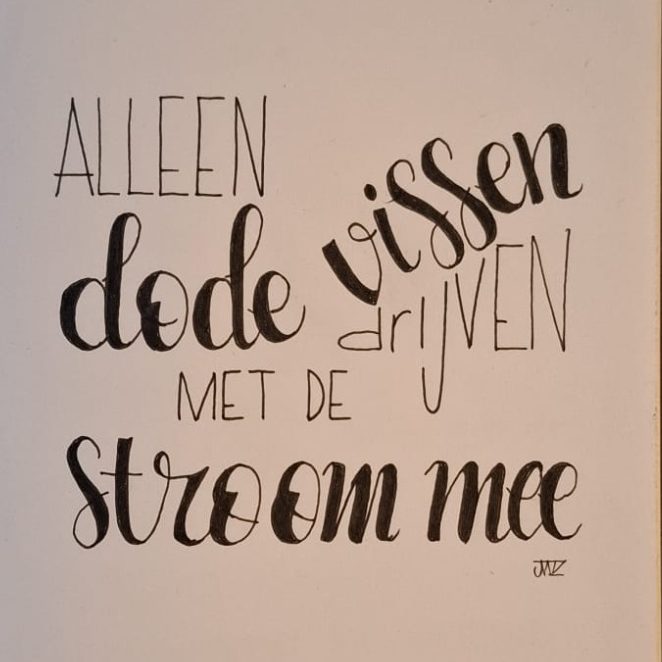 ALLEEN
dode vissen
drijVEN
MET DE
stroom mee